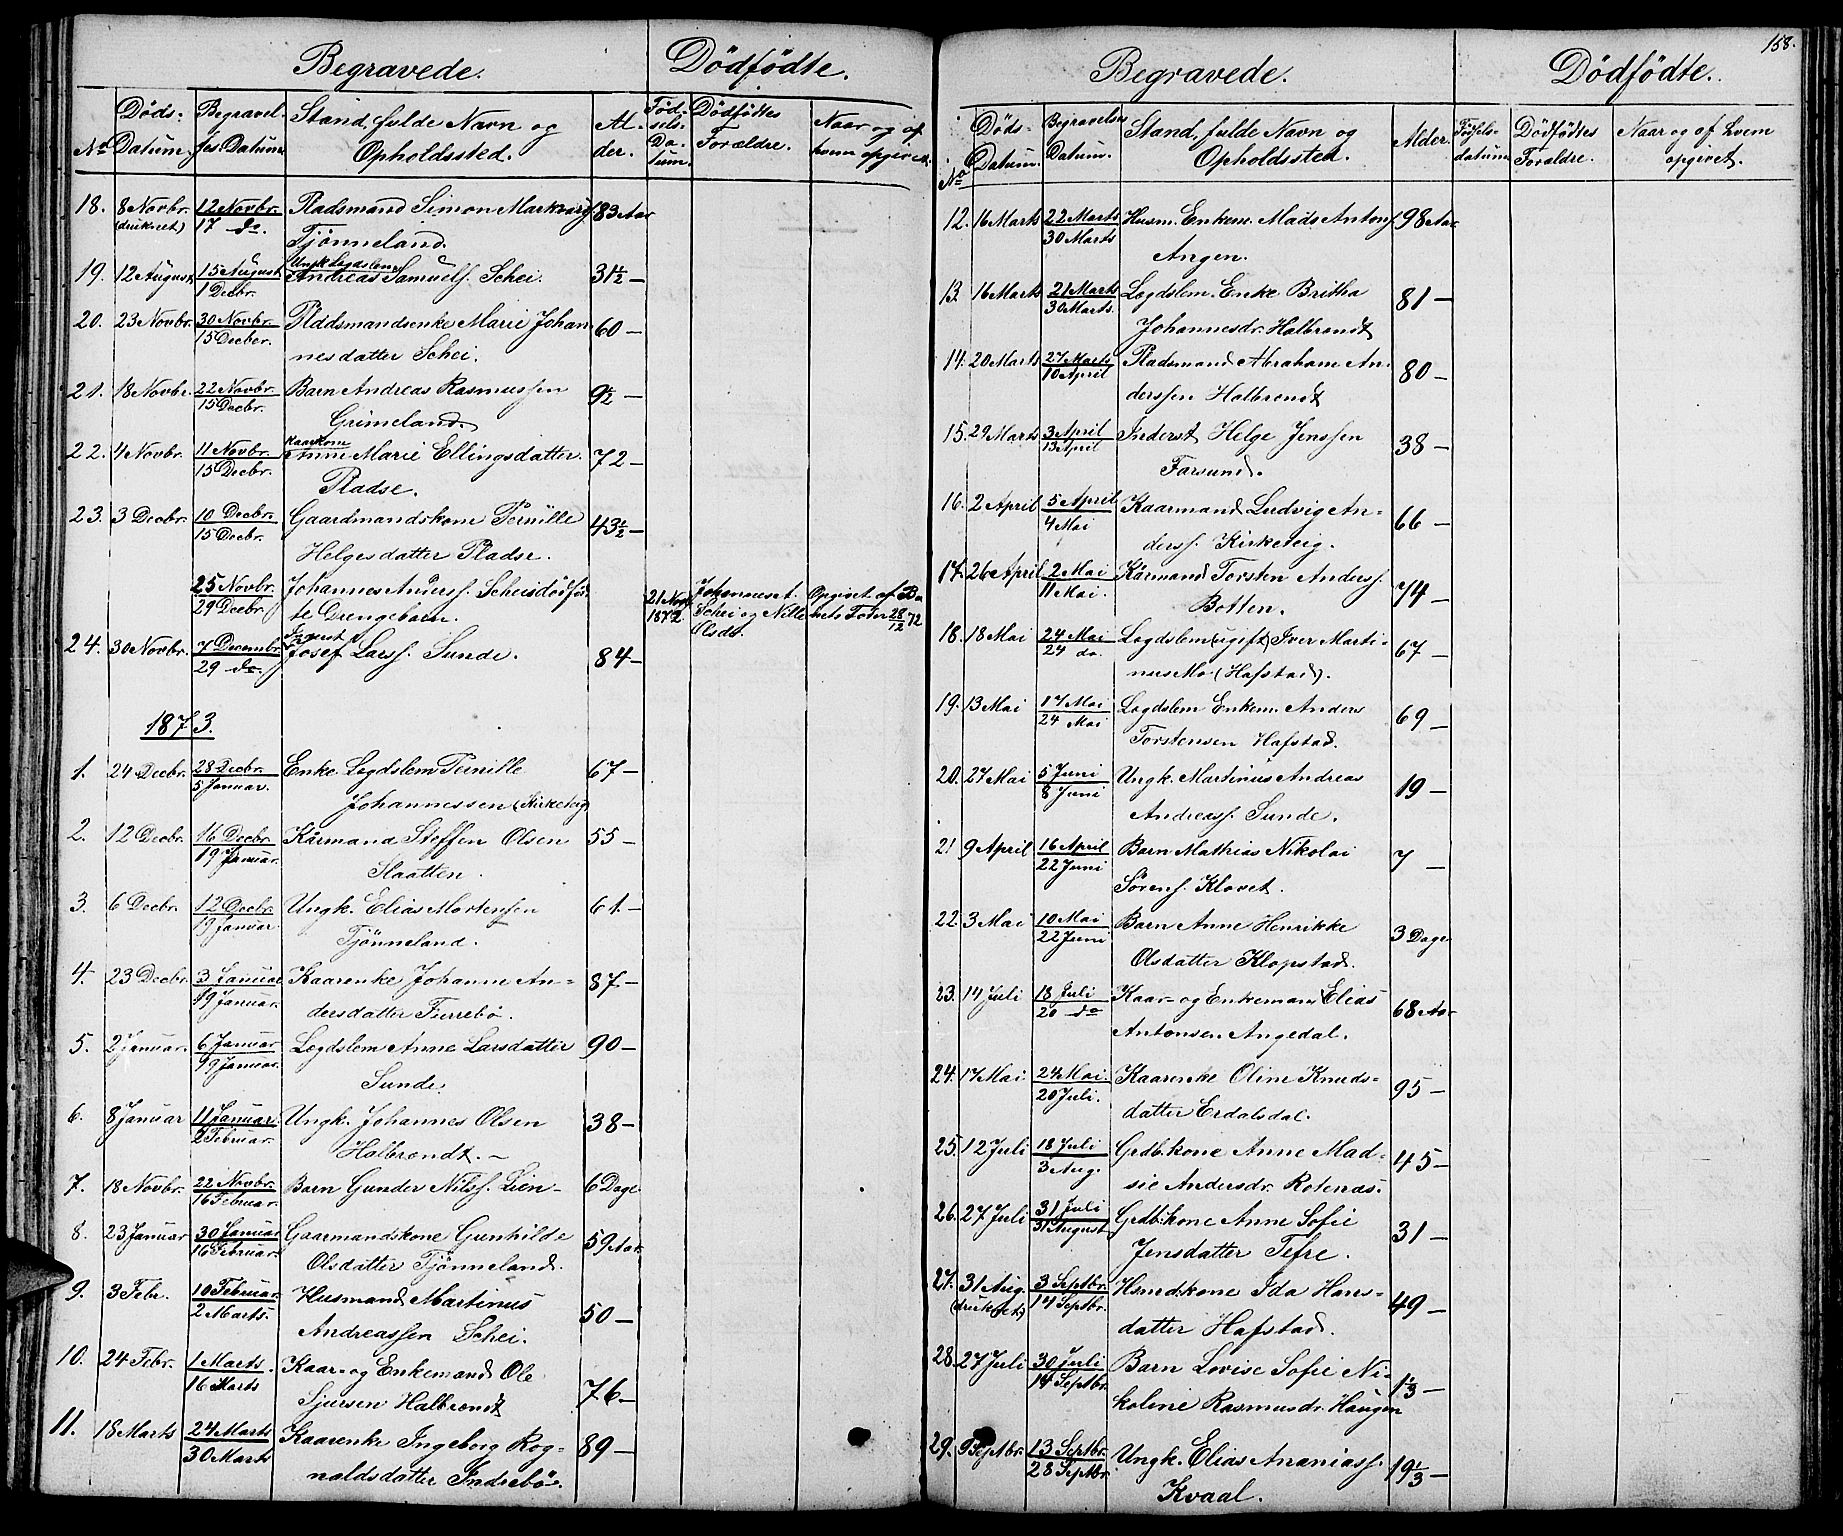 158.
Begravede. Dödfödte.
No Döds-Datum. Begravelses Datum Stand, fulde Navn og Opholdssted. Alder. Fødselsdatum. Dödfödtes Forældre. Naar og af hvem opgivet.
18. 8 Novbr. (druknet) 12 Novbr. 17 do. Pladsmand Simon Markusf. 83 Aar
Tjönneland.
19. 12 August 15 August 1 Decbr. Ungk. Lægdslem Andreas Samuelf. Schei. 31½ —
20. 23 Novbr. 30 Novbr. 15 Decber. Pladsmandsenke Marie Johan 60 —
nesdatter Schei.
21. 18 Novbr. 22 Novbr. 15 Decbr. Barn Andreas Rasmussen 9½ —
Grimeland
22. 4 Novbr. 11 Novbr. 15 Decbr. Kaarkone Anne Marie Ellingsdatter. 72 —
Pladse.
23. 3 Decbr. 10 Decbr. 15 Decbr. Gaardmandskone Pernille 43½ —
Helgesdatter Pladse.
25 Novbr. 29 Decbr. Johannes Anderss. Scheis dödföd 21 Novb 1872. Johannes A. Opgivet af Bar
te Drengebarn. Schei og Nille nets Fader 28/12 72
Olsdr.
24. 30 Novbr. 7 Decembr. 29 do. Inderst Josef Larss. Sunde. 84 —
1873.
1. 24 Decbr. 28 Decbr. 5 Januar. Enke Lægdslem Pernille 67 —
Johannessen (Kirketeig)
2. 12 Decbr. 16 Decbr. 19 Januar. Kårmand Steffen Olsen 55 —
Slaatten.
3. 6 Decbr. 12 Decbr. 19 Januar. Ungk. Elias Mortensen 61 —
Tjönneland.
4. 23 Decbr. 3 Januar 19 Januar. Kaarenke Johanne An= 87 —
dersdatter Furrebö.
5. 2 Januar. 6 Januar 19 Januar. Lægdslem Anne Larsdatter 90 —
Sunde
6. 8 Januar 11 Januar. 2 Februar. Ungk. Johannes Olsen 38 —
Halbrendt. —
7. 18 Novbr. 22 Novbr. 16 Februar. Barn Gunder Nilss. Lien — 6 Dage
8. 23 Januar 30 Januar 16 Februar. Gaarmandskone Gunhilde 59 Aar
Olsdatter Tjönneland.
9. 3 Febr. 10 Februar 2 Marts. Husmand Martinus 50 —
Andreassen Schei.
10. 24 Febr. 1 Marts. 16 Marts Kaar- og Enkemand Ole 76 —
Sjursen Halbrendt
11. 18 Marts 24 Marts 30 Marts Kaarenke Ingeborg Rog= 89 —
naldsdatter Indrebö.
Begravede. Dödfödte.
No Döds-Datum. Begravelses Datum. Stand, fulde Navn og Opholdssted. Alder. Födselsdatum Dödfödtes Forældre. Naar og af hvem opgivet.
12. 16 Marts 22 Marts 30 Marts Husm. Enkem. Mads Antonf. 98 Aar
Angen.
13. 16 Marts 21 Marts 30 Marts. Lægdslem. Enke Britha 81 —
Johannesdr. Halbrendt
14. 20 Marts 27 Marts 10 April Pladsmand Abraham An. 80 —
derssen Halbrendt
15. 29 Marts 3 April 13 April Inderst Helge Jenssen 38 —
Farsund.
16. 2 April 5 April 4 Mai Kaarmand Ludvig An= 66 —
derss. Kirketeig.
17. 26 April 2 Mai 11 Mai. Kårmand Torsten Anderss. 74 —
Botten.
18. 18 Mai 24 Mai 24 do. Lægdslem (ugift) Iver Marti= 67 —
nus Mo (Hafstad).
19. 13 Mai 17 Mai 24 Mai Lægdslem Enkem. Anders 69 —
Torstensen Hafstad.
20. 27 Mai 5 Juni 8 Juni Ungk. Martinus Andreas 19 —
Andreass. Sunde.
21 9 April 16 April 22 Juni Barn Mathias Nikolai 7 —
Sörens. Klovet.
22. 3 Mai 10 Mai 22 Juni Barn Anne Henrikke 3 Dage
Olsdatter Klopstad.
23. 14 Juli 18 Juli 20 do Kaar- og Enkemand Elias 68 Aar
Antonsen Angedal.
24. 17 Mai 24 Mai. 20 Juli. Kaarenke Oline Knuds= 95 —
datter Erdalsdal.
25. 12 Juli 18 Juli 3 Aug. Grdb. kone Anne Mad= 45 —
sie Andersdr. Rotenæs.
26. 27 Juli 31 Juli 31 August Grdb. kone Anne Sofie 31 —
Jensdatter Tefre.
27. 31 Aug. (druknet) 3 Septbr. 14 Septbr. Hsmdskone Ida Hans= 49 —
datter Hafstad.
28. 27 Juli 30 Juli 14 Septbr. Barn Lovise Sofie Ni= 1⅓ —
koline Rasmusdr. Haugen
29. 9 Septbr. 13 Septbr. 28 Septbr Ungk. Elias Ananiass. 19⅓ —
Kvaal.